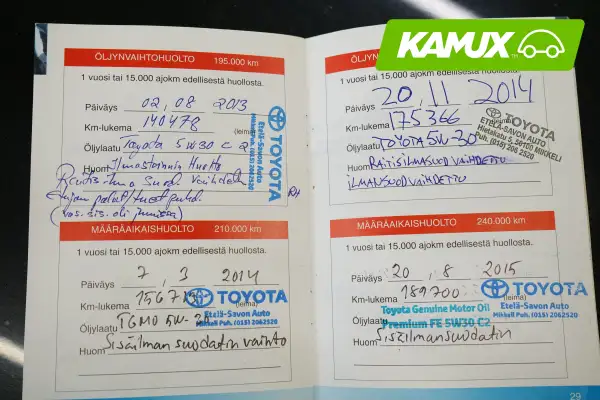 KAMUX
ÖLJYNVAIHTOHUOLTO 195.000 km
1 vuosi tai 15.000 ajokm edellisestä huollosta.
Päiväys 02, 08 2013
Km-lukema 140478 (leima)
Öljylaatu Toyota 5W30 C2
Huom Ilmastoinnin Huolto
Raitis-ilma Suod. Vaihdettu
TOYOTA
Etelä-Savon Auto
RH
MÄÄRÄAIKAISHUOLTO 210.000 km
1 vuosi tai 15.000 ajokm edellisestä huollosta.
Päiväys 7, 3 2014
Km-lukema (leima)
TOYOTA
Etelä-Savon Auto
Mikkeli Puh. (015) 2062520
Öljylaatu TGMO 5W-30
Huom Sisäilman suodatin vaihto
1 vuosi tai 15.000 ajokm edellisestä huollosta.
Päiväys 20, 11 2014
Km-lukema 175366
Öljylaatu TOYOTA 5W-30
TOYOTA
ETELÄ-SAVON AUTO
Huom RAITISILMASUOD VAIHDETTU
ILMANSUOD VAIHDETTU
MÄÄRÄAIKAISHUOLTO 240.000 km
1 vuosi tai 15.000 ajokm edellisestä huollosta.
Päiväys 20, 8 2015
Km-lukema 189700 (leima)
TOYOTA
Etelä-Savon Auto
Mikkeli Puh. (015) 2062520
Öljylaatu Toyota Genuine Motor Oil
Premium FE 5W30 C2
Huom Sisäilmansuodatin
29